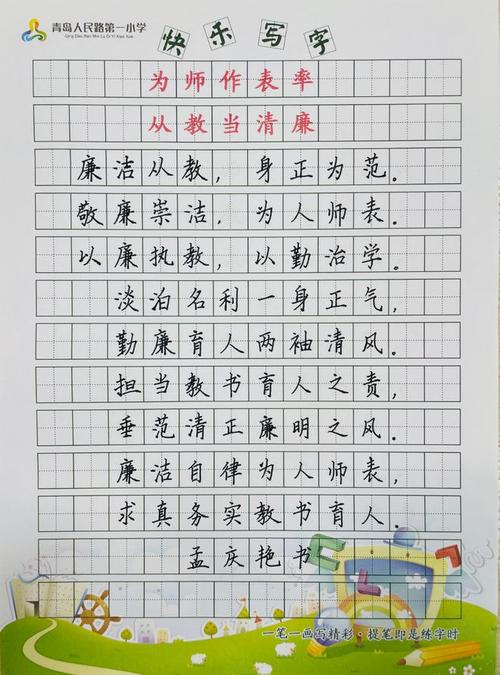 青岛人民路第一小学
Qing Dao Ren Min Lu Di Yi Xiao Xue
快乐写字
为师作表率
从教当清廉
廉洁从教，身正为范。
敬廉崇洁，为人师表。
以廉执教，以勤治学。
淡泊名利一身正气，
勤廉育人两袖清风。
担当教书育人之责，
垂范清正廉明之风。
廉洁自律为人师表，
求真务实教书育人。
孟庆艳书
一笔一画写精彩·提笔即是练字时